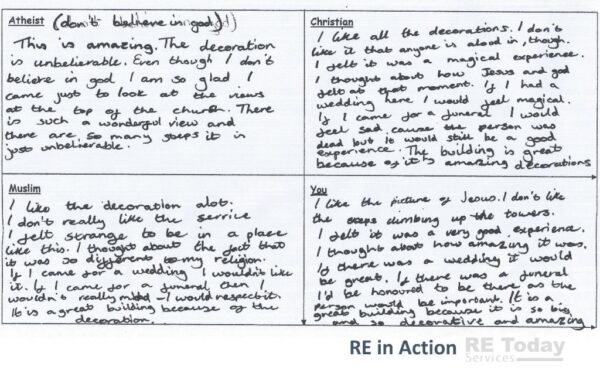 Atheist (don't believe in god)
This is amazing. The decoration
is unbelievable. Even though I don't
believe in god I am so glad I
came just to look at the views
at the top of the church. There
is such a wonderful view and
there are so many steps it is
just unbelievable.
Christian
I like all the decorations. I don't
like it that anyone is alood in, though.
I felt it was a magical experience.
I thought about how Jesus and god
felt at that moment. If I had a
wedding here I would feel magical.
If I came for a funeral I would
feel sad cause the person was
dead but it would still be a good
experience. The building is great
because of it's amazing decorations
Muslim
I like the decoration alot.
I don't really like the service
I felt strange to be in a place
like this. I thought about the fact that
it was so different to my religion.
If I came for a wedding I wouldn't like
it. If I came for a funeral then I
wouldn't really mind - I would respect it.
It is a great building because of the
decoration.
You
I like the picture of Jesus. I don't like
the steps climbing up the towers.
I felt it was a very good experience.
I thought about how amazing it was.
If there was a wedding it would
be great. If there was a funeral
I'd be honoured to be there as the
person would be important. It is a
great building because it is so big
and so decorative and amazing
RE in Action RE Today
Services